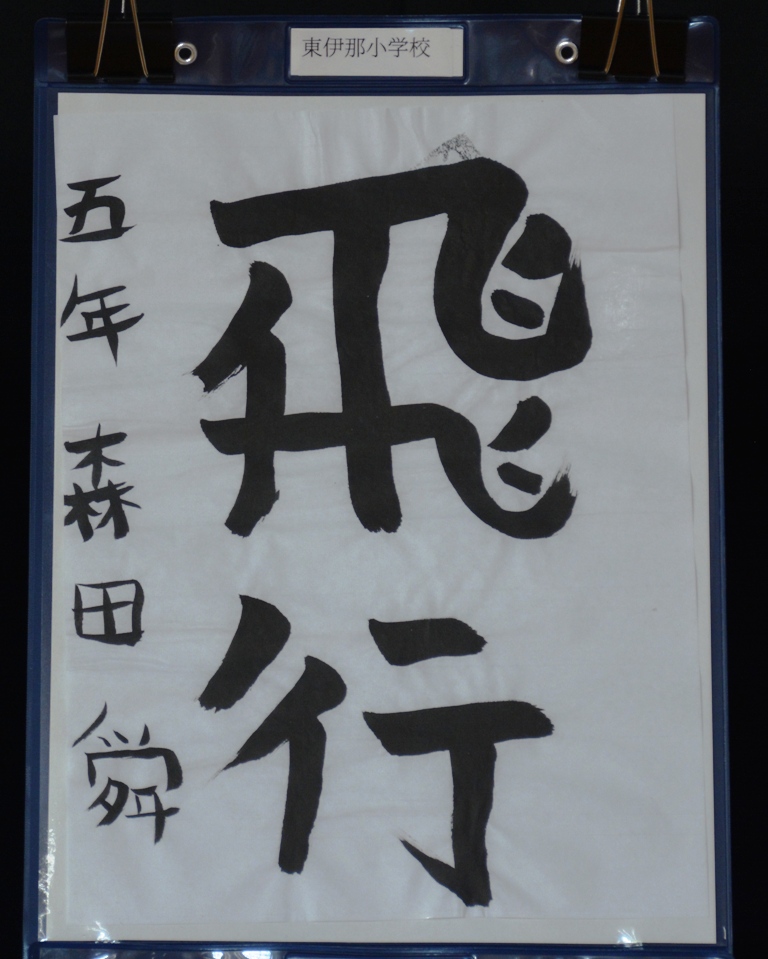 東伊那小学校
飛行
五年 森田 舜